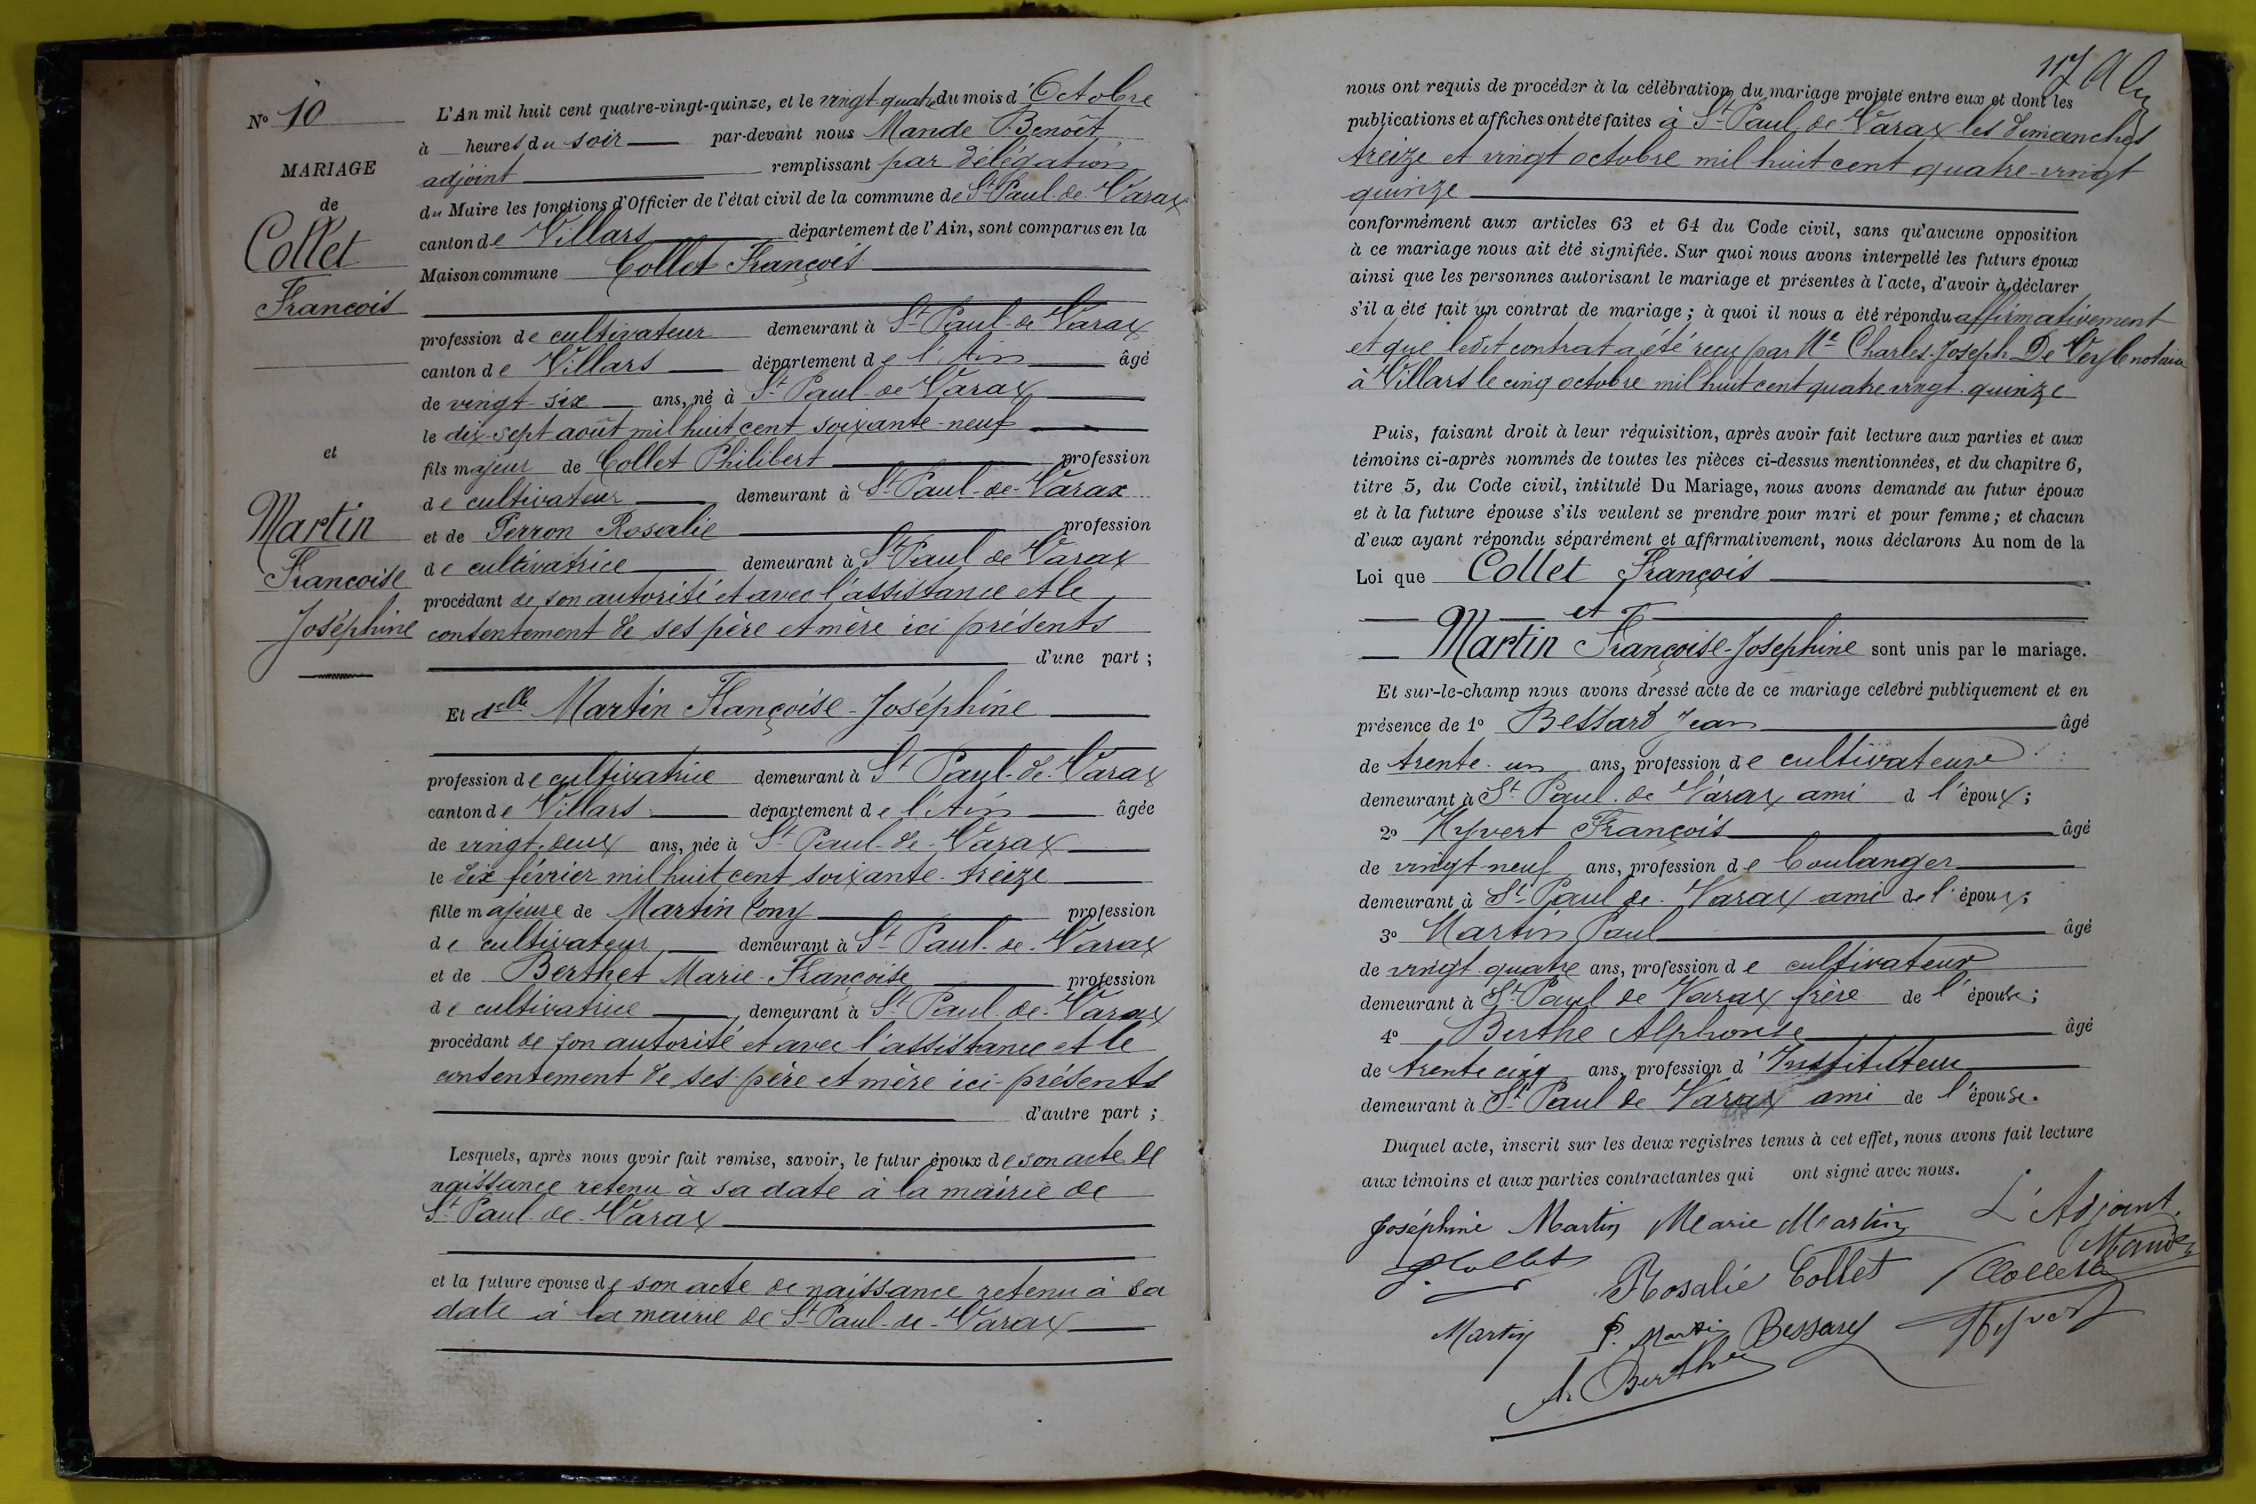 N° 10
MARIAGE
de
Collet
François
et
Martin
Françoise
Joséphine
L'An mil huit cent quatre-vingt-quinze, et le vingt-quatre du mois d'Octobre
à heures du soir par-devant nous Mande Benoît
adjoint remplissant par délégation
du Maire les fonctions d'Officier de l'état civil de la commune de St Paul-de-Varax
canton de Villars département de l'Ain, sont comparus en la
Maison commune Collet François
profession de cultivateur demeurant à St Paul-de-Varax
canton de Villars département de l'Ain âgé
de vingt-six ans, né à St Paul-de-Varax
le dix-sept août mil huit cent soixante-neuf
fils majeur de Collet Philibert profession
de cultivateur demeurant à St Paul-de-Varax
et de Perron Rosalie profession
de cultivatrice demeurant à St Paul de Varax
procédant de son autorité et avec l'assistance et le
consentement de ses père et mère ici présents
d'une part ;
Et delle Martin Françoise-Joséphine
profession de cultivatrice demeurant à St Paul-de-Varax
canton de Villars département de l'Ain âgée
de vingt-deux ans, née à St Paul-de-Varax
le dix février mil huit cent soixante-treize
fille majeure de Martin Cony profession
de cultivateur demeurant à St Paul-de-Varax
et de Berthet Marie-Françoise profession
de cultivatrice demeurant à St Paul-de-Varax
procédant de son autorité et avec l'assistance et le
consentement de ses père et mère ici présents
d'autre part ;
Lesquels, après nous avoir fait remise, savoir, le futur époux de son acte de
naissance retenu à sa date à la mairie de
St Paul-de-Varax
et la future épouse de son acte de naissance retenu à sa
date à la mairie de St Paul-de-Varax
117
nous ont requis de procéder à la célébration du mariage projeté entre eux et dont les
publications et affiches ont été faites à St Paul de Varax les dimanches
treize et vingt octobre mil huit cent quatre-vingt
quinze
conformément aux articles 63 et 64 du Code civil, sans qu'aucune opposition
à ce mariage nous ait été signifiée. Sur quoi nous avons interpellé les futurs époux
ainsi que les personnes autorisant le mariage et présentes à l'acte, d'avoir à déclarer
s'il a été fait un contrat de mariage ; à quoi il nous a été répondu affirmativement
et que ledit contrat a été reçu par Me Charles-Joseph De Veyle notaire
à Villars le cinq octobre mil huit cent quatre vingt-quinze
Puis, faisant droit à leur réquisition, après avoir fait lecture aux parties et aux
témoins ci-après nommés de toutes les pièces ci-dessus mentionnées, et du chapitre 6,
titre 5, du Code civil, intitulé Du Mariage, nous avons demandé au futur époux
et à la future épouse s'ils veulent se prendre pour mari et pour femme ; et chacun
d'eux ayant répondu séparément et affirmativement, nous déclarons Au nom de la
Loi que Collet François
et
Martin Françoise-Josephine sont unis par le mariage.
Et sur-le-champ nous avons dressé acte de ce mariage célébré publiquement et en
présence de 1° Bessard Jean âgé
de trente-un ans, profession de cultivateur
demeurant à St Paul-de Varax ami d l'époux ;
2° Hyvert François âgé
de vingt-neuf ans, profession de boulanger
demeurant à St Paul de-Varax ami de l'époux ;
3° Martin Paul âgé
de vingt-quatre ans, profession de cultivateur
demeurant à St Paul de Varax frère de l'épouse ;
4° Berthe Alphonse âgé
de trente cinq ans, profession d'Instituteur
demeurant à St Paul de Varax ami de l'épouse.
Duquel acte, inscrit sur les deux registres tenus à cet effet, nous avons fait lecture
aux témoins et aux parties contractantes qui ont signé avec nous.
Joséphine Martin Marie Martin L'Adjoint
Mande
Collet Rosalie Collet
Martin P. Martin Bessard Hyvert
A. Berthe